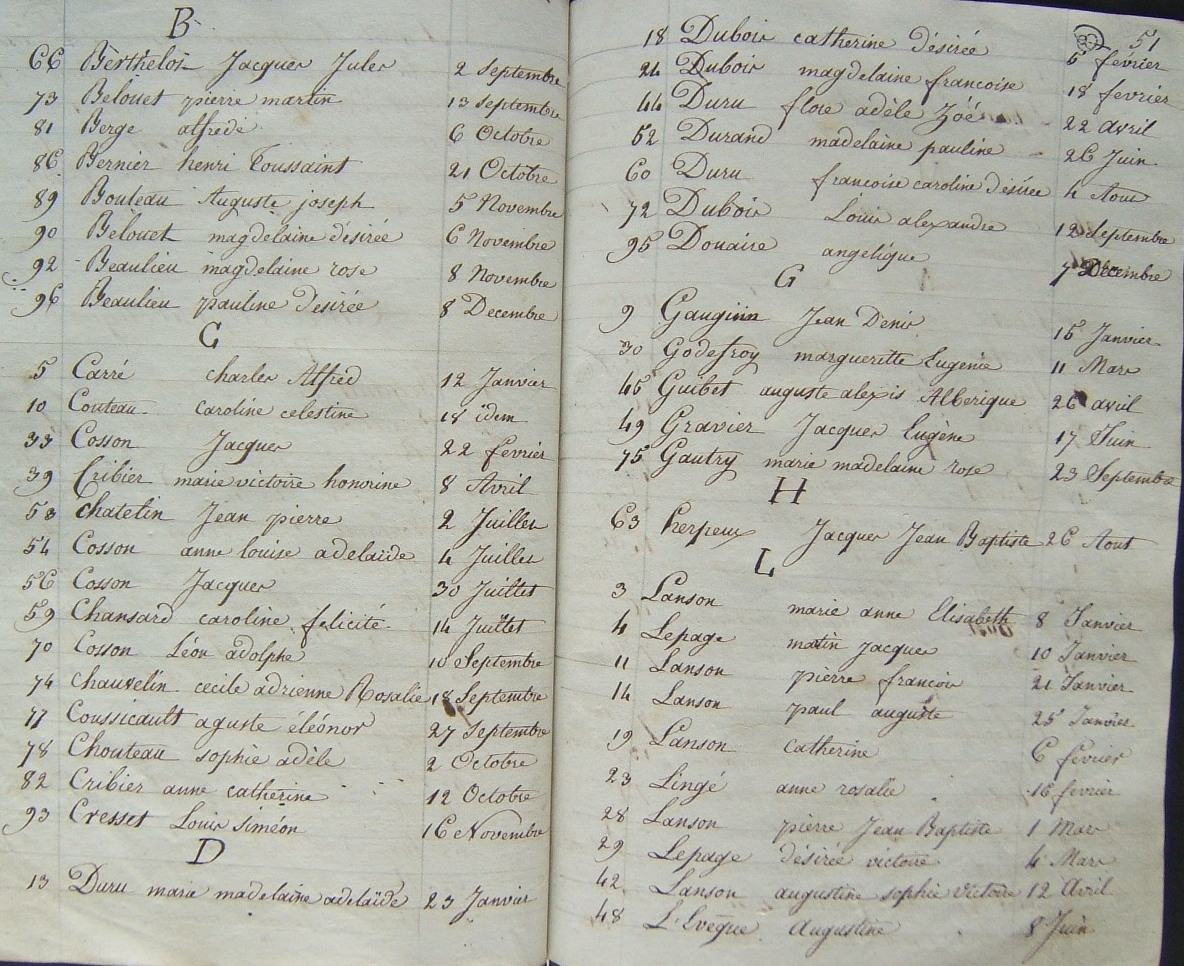 B
66 Berthelot Jacques Jules 2 Septembre
73 Belouet pierre martin 13 Septembre
81 Berge alfrede 6 Octobre
86 Bernier henri Toussaint 21 Octobre
89 Bouteau Auguste joseph 5 Novembre
90 Belouet magdelaine desirée 6 Novembre
92 Beaulieu magdelaine rose 8 Novembre
96 Beaulieu pauline desirée 8 Decembre
C
5 Carré charles Alfred 12 Janvier
10 Couteau caroline celestine 18 idem
33 Cosson Jacques 22 fevrier
39 Cribier marie victoire honorine 8 Avril
53 chatelin Jean pierre 2 Juillet
54 Cosson anne louise adelaide 4 Juillet
56 Cosson Jacques 30 Juillet
59 Chansard caroline felicité 14 Juillet
70 Cosson Léon adolphe 10 Septembre
74 chauvelin cecile adrienne Rosalie 18 Septembre
77 Coussicault aguste éléonor 27 Septembre
78 Chouteau sophie adèle 2 Octobre
82 Cribier anne catherine 12 Octobre
93 Cresset Louis siméon 16 Novembre
D
13 Duru marie madelaine adelaïde 23 Janvier
51
18 Dubois catherine désirée 6 février
24 Dubois magdelaine francoise 18 fevrier
44 Duru flore adèle Zoé 22 avril
52 Durand madelaine pauline 26 Juin
60 Duru francoise caroline désirée 4 Aout
72 Dubois Louis alexandre 12 Septembre
95 Douaire angelique 7 Décembre
G
9 Gauguin Jean Denis 15 Janvier
30 Godefroy margueritte Eugenie 11 Mars
45 Guibet auguste alexis Alberique 26 avril
49 Gravier Jacques Eugène 17 Juin
75 Gautry marie madelaine rose 23 Septembre
H
63 Jacques Jean Baptiste 26 Aout
L
3 Lanson marie anne Elisabeth 8 Janvier
4 Lepage matin jacques 10 Janvier
11 Lanson pierre francois 21 Janvier
14 Lanson paul auguste 25 Janvier
19 Lanson catherine 6 février
23 Lingé anne rosalie 16 fevrier
28 Lanson pierre Jean Baptiste 1 Mars
29 Lepage désirée victoire 4 Mars
42 Lanson augustine sophie victoire 12 Avril
48 L'Eveque Augustine 8 Juin